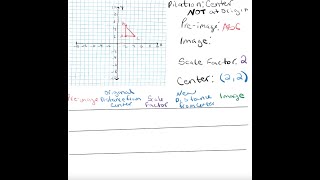 Dilation: Center
NOT at Origin
Pre-image:
Image:
Scale Factor: 2
Center: (2,2)
Pre-image Original Distance from Center Scale Factor New Distance from Center Image